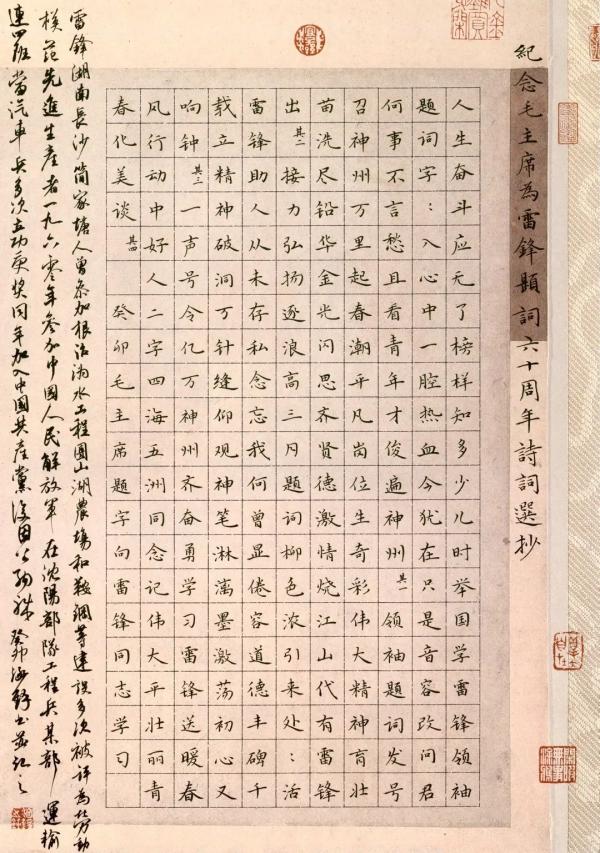 紀念毛主席為雷鋒題詞六十周年詩詞選抄
人生奋斗应无了榜样知多少儿时举国学雷锋领袖
题词字：入心中一腔热血今犹在只是音容改问君
何事不言愁且看青年才俊遍神州其一领袖题词发号
召神州万里起春潮平凡岗位生奇彩伟大精神育壮
苗洗尽铅华金光闪思齐贤德激情烧江山代有雷锋
出其二接力弘扬逐浪高三月题词柳色浓引来处：活
雷锋助人从未存私念忘我何曾显倦容道德丰碑千
载立精神破洞万针缝仰观神笔淋漓墨激荡初心又
响钟其三一声号令亿万神州齐奋勇学习雷锋送暖春
风行动中好人二字四海五洲同念记伟大平壮丽青
春化美谈其四癸卯毛主席题字向雷锋同志学习
雷鋒湖南長沙簡家塘人曾參加根治溈水工程團山湖農場和鞍鋼等建設多次被評為勞動
模范先進生產者一九六零年參加中國人民解放軍在沈陽部隊工程兵某部運輸
連四班當汽車兵多次立功受奖同年加入中國共產黨後因公殉職癸卯